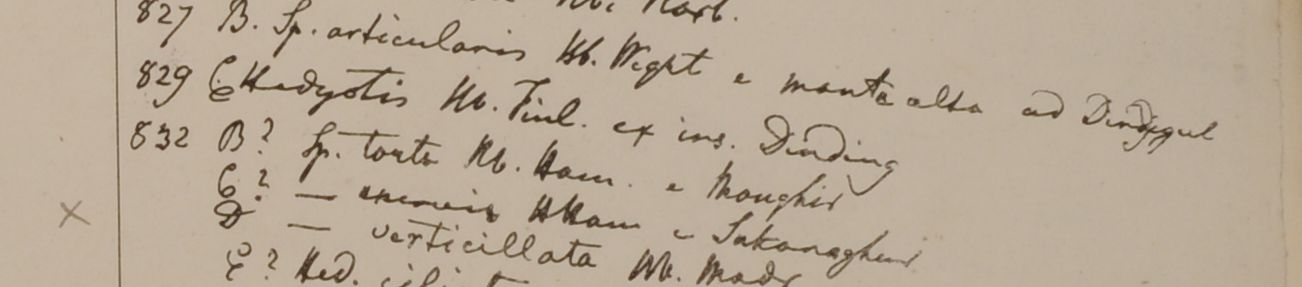 Hb. Roxb.
827 B. Sp. articularis Hb. Wight e monte alto ad Dindygul
829 C Hedyotis Hb. Finl. ex ins. Dinding
832 B? Sp. torta Hb. Ham. e Monghir
C? — Hb. Ham e
D — verticillata Hb. Madr
E? Hed.